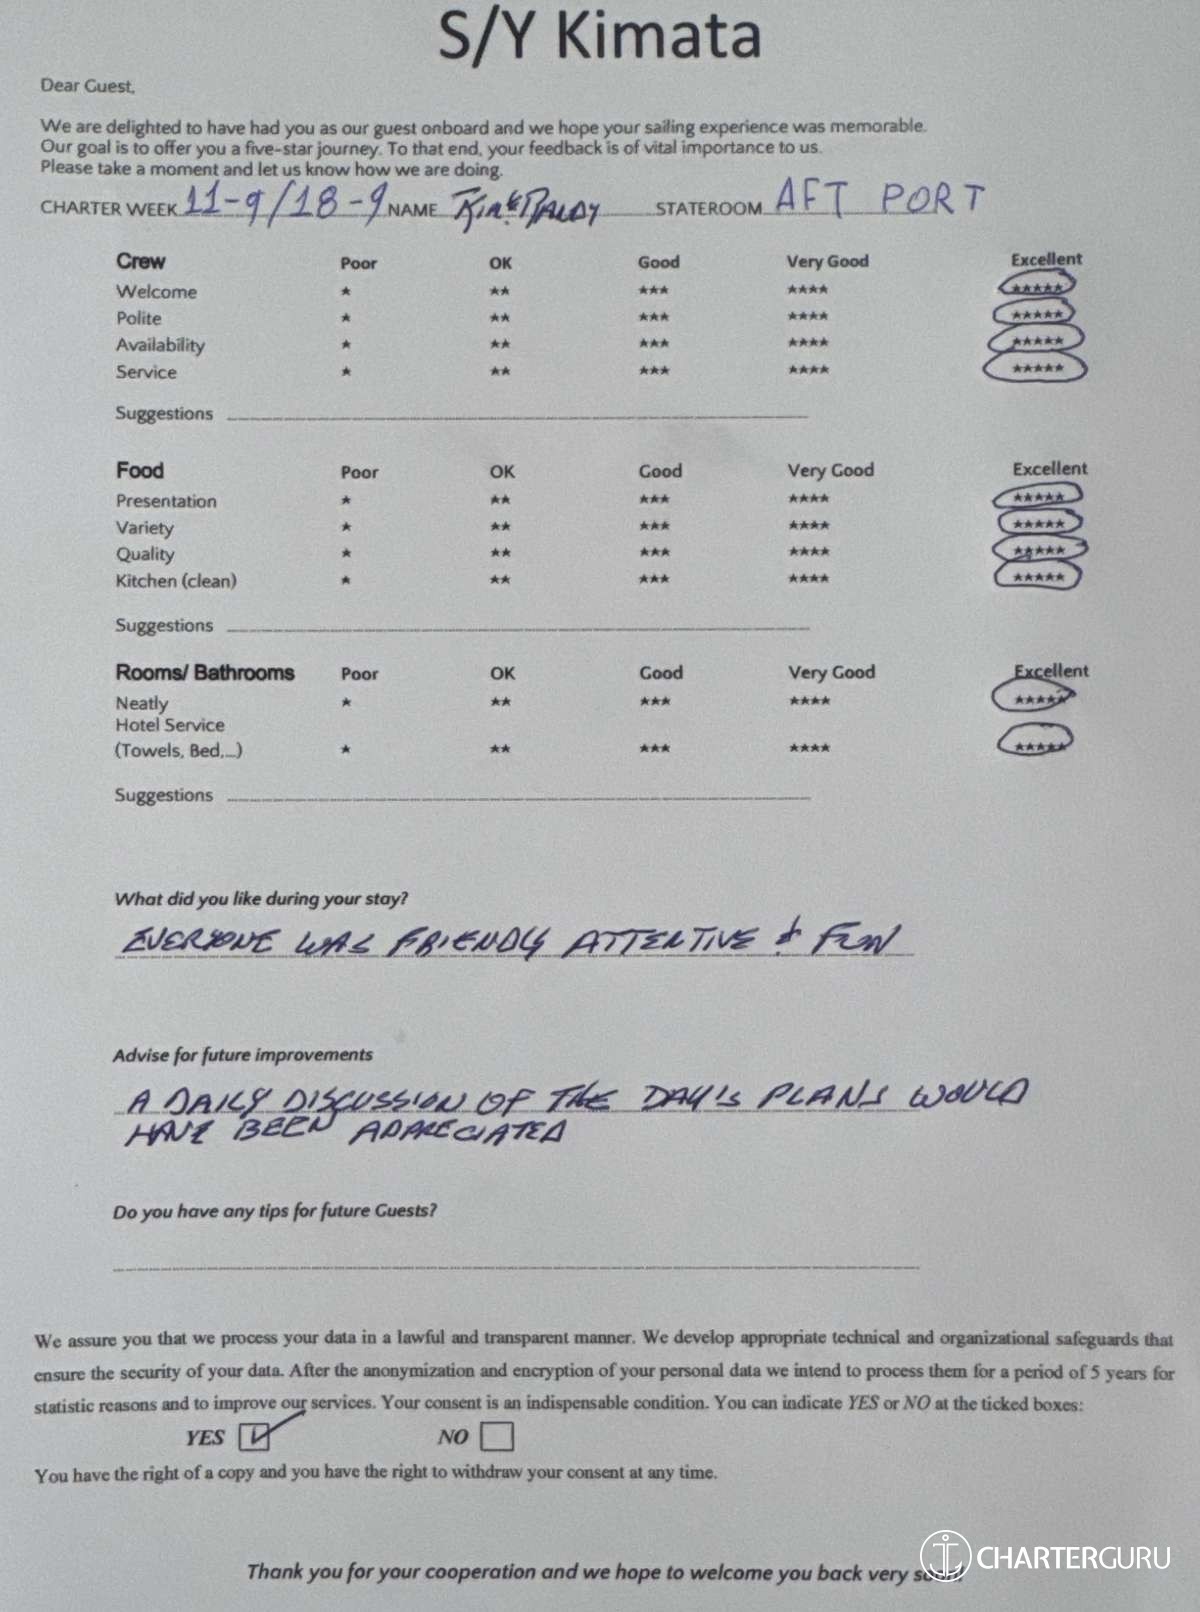 S/Y Kimata
Dear Guest,
We are delighted to have had you as our guest onboard and we hope your sailing experience was memorable.
Our goal is to offer you a five-star journey. To that end, your feedback is of vital importance to us.
Please take a moment and let us know how we are doing.
CHARTER WEEK 11-9/18-9 NAME KIM & RANDY STATEROOM AFT PORT
Crew Poor OK Good Very Good Excellent
Welcome ★ ★★ ★★★ ★★★★ ★★★★★
Polite ★ ★★ ★★★ ★★★★ ★★★★★
Availability ★ ★★ ★★★ ★★★★ ★★★★★
Service ★ ★★ ★★★ ★★★★ ★★★★★
Suggestions
Food Poor OK Good Very Good Excellent
Presentation ★ ★★ ★★★ ★★★★ ★★★★★
Variety ★ ★★ ★★★ ★★★★ ★★★★★
Quality ★ ★★ ★★★ ★★★★ ★★★★★
Kitchen (clean) ★ ★★ ★★★ ★★★★ ★★★★★
Suggestions
Rooms/ Bathrooms Poor OK Good Very Good Excellent
Neatly ★ ★★ ★★★ ★★★★ ★★★★★
Hotel Service
(Towels, Bed,...) ★ ★★ ★★★ ★★★★ ★★★★★
Suggestions
What did you like during your stay?
EVERYONE WAS FRIENDLY ATTENTIVE & FUN
Advise for future improvements
A DAILY DISCUSSION OF THE DAY'S PLANS WOULD
HAVE BEEN APPRECIATED
Do you have any tips for future Guests?
We assure you that we process your data in a lawful and transparent manner. We develop appropriate technical and organizational safeguards that
ensure the security of your data. After the anonymization and encryption of your personal data we intend to process them for a period of 5 years for
statistic reasons and to improve our services. Your consent is an indispensable condition. You can indicate YES or NO at the ticked boxes:
YES NO
You have the right of a copy and you have the right to withdraw your consent at any time.
Thank you for your cooperation and we hope to welcome you back very
CHARTERGURU